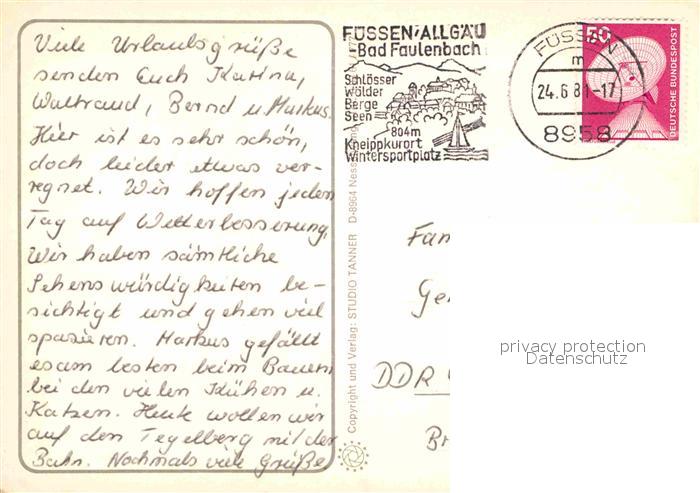 Viele Urlaubsgrüße
senden Euch Katrina,
Waltraud, Bernd u. Markus.
Hier ist es sehr schön,
doch leider etwas ver-
regnet. Wir hoffen jeden
Tag auf Wetterbesserung.
Wir haben sämtliche
Sehenswürdigkeiten be-
sichtigt und gehen viel
spazieren. Markus gefällt
es am besten beim Bauern
bei den vielen Kühen u.
Katzen. Heute wollen wir
auf den Tegelberg mit der
Bahn. Nochmals viele Grüße
Copyright und Verlag: STUDIO TANNER D-8964 Ness
FÜSSEN/ALLGÄU
-Bad Faulenbach
Schlösser
Wälder
Berge
Seen
804m
Kneippkurort
Wintersportplatz
FÜSSEN
m
24.6.81-17
8958
50
DEUTSCHE BUNDESPOST
Fam
Ge
DDR
B
privacy protection
Datenschutz